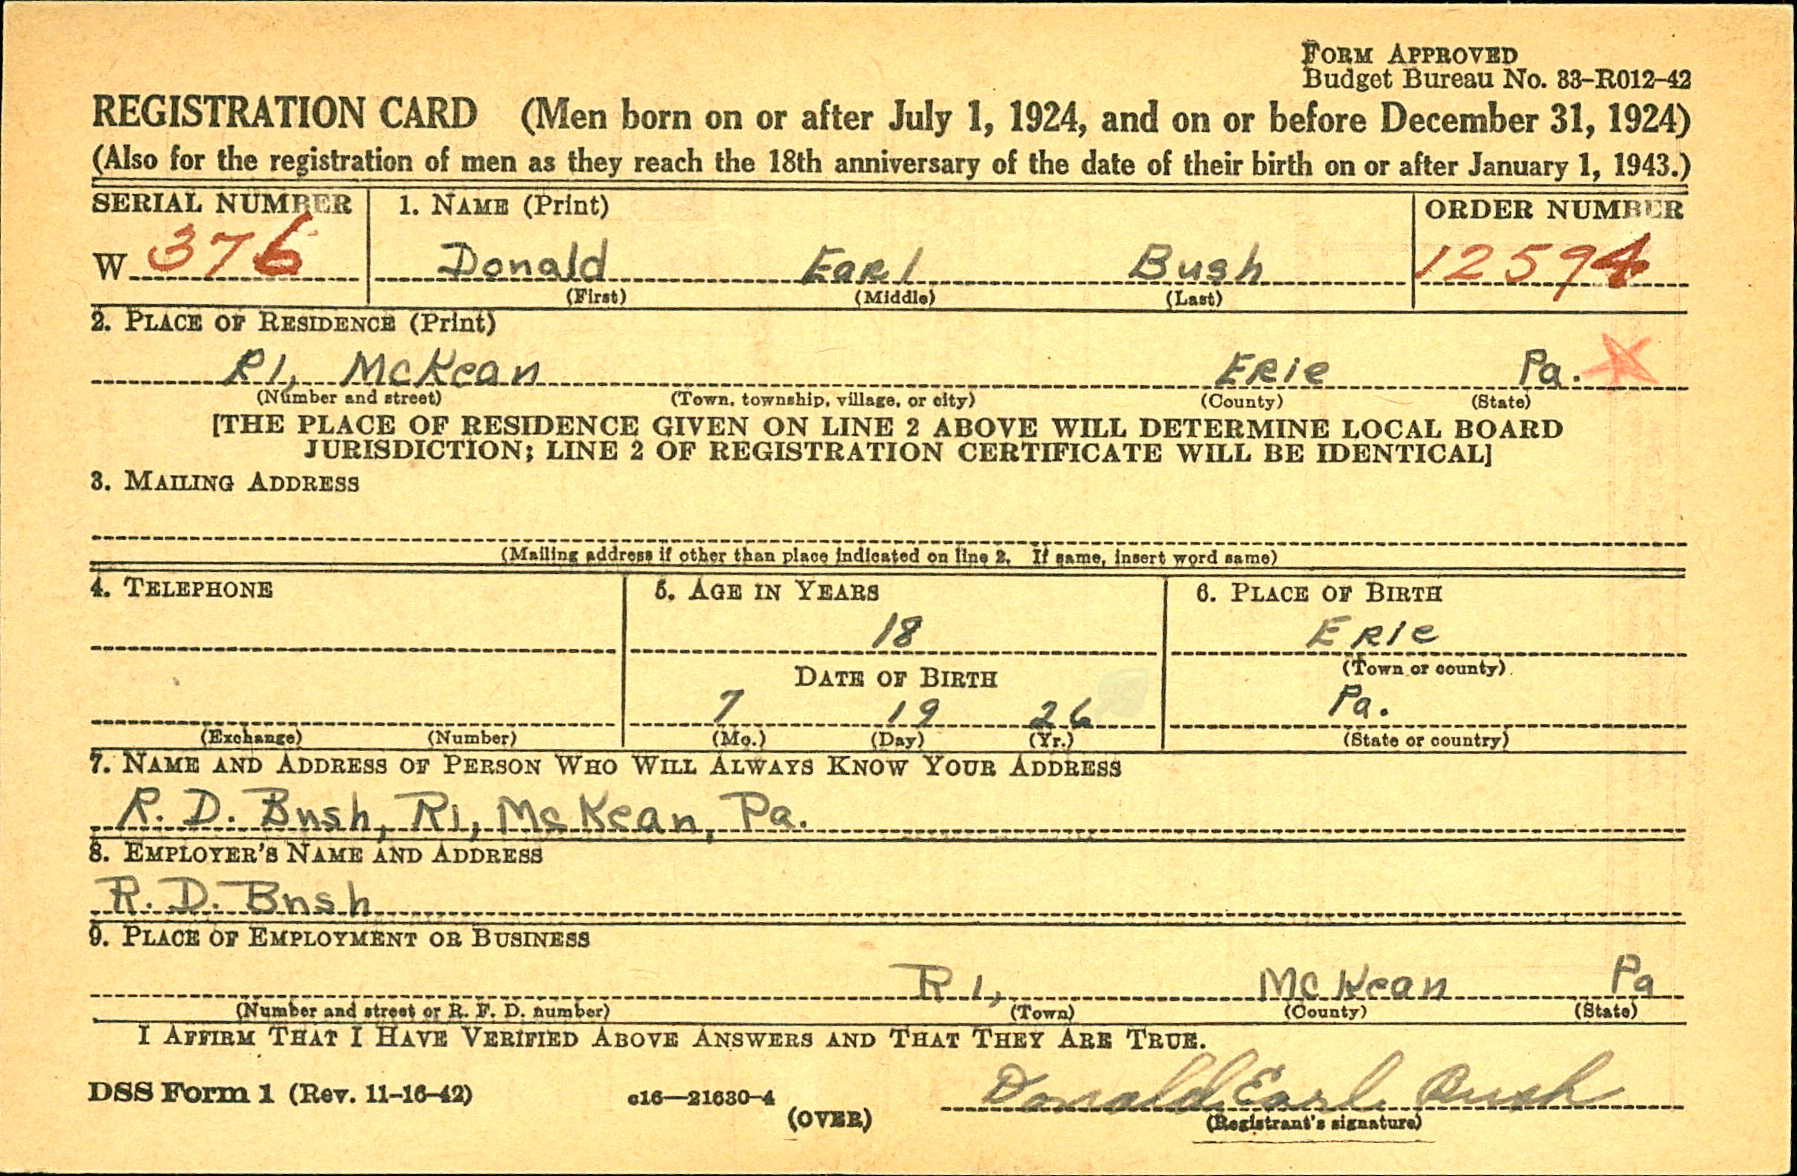 FORM APPROVED
Budget Bureau No. 33-R012-42
REGISTRATION CARD (Men born on or after July 1, 1924, and on or before December 31, 1924)
(Also for the registration of men as they reach the 18th anniversary of the date of their birth on or after January 1, 1943.)
SERIAL NUMBER 1. NAME (Print) ORDER NUMBER
W 376 Donald Earl Bush 12594
(First) (Middle) (Last)
2. PLACE OF RESIDENCE (Print)
R1, McKean Erie Pa.
(Number and street) (Town, township, village, or city) (County) (State)
[THE PLACE OF RESIDENCE GIVEN ON LINE 2 ABOVE WILL DETERMINE LOCAL BOARD
JURISDICTION; LINE 2 OF REGISTRATION CERTIFICATE WILL BE IDENTICAL]
3. MAILING ADDRESS
(Mailing address if other than place indicated on line 2. If same, insert word same)
4. TELEPHONE 5. AGE IN YEARS 6. PLACE OF BIRTH
18 Erie
(Town or county)
DATE OF BIRTH
7 19 26 Pa.
(Exchange) (Number) (Mo.) (Day) (Yr.) (State or country)
7. NAME AND ADDRESS OF PERSON WHO WILL ALWAYS KNOW YOUR ADDRESS
R. D. Bush, R1, McKean, Pa.
8. EMPLOYER'S NAME AND ADDRESS
R. D. Bush
9. PLACE OF EMPLOYMENT OR BUSINESS
R1, McKean Pa
(Number and street or R. F. D. number) (Town) (County) (State)
I AFFIRM THAT I HAVE VERIFIED ABOVE ANSWERS AND THAT THEY ARE TRUE.
DSS Form 1 (Rev. 11-16-42) c16—21630-4 Donald Earl Bush
(OVER) (Registrant's signature)